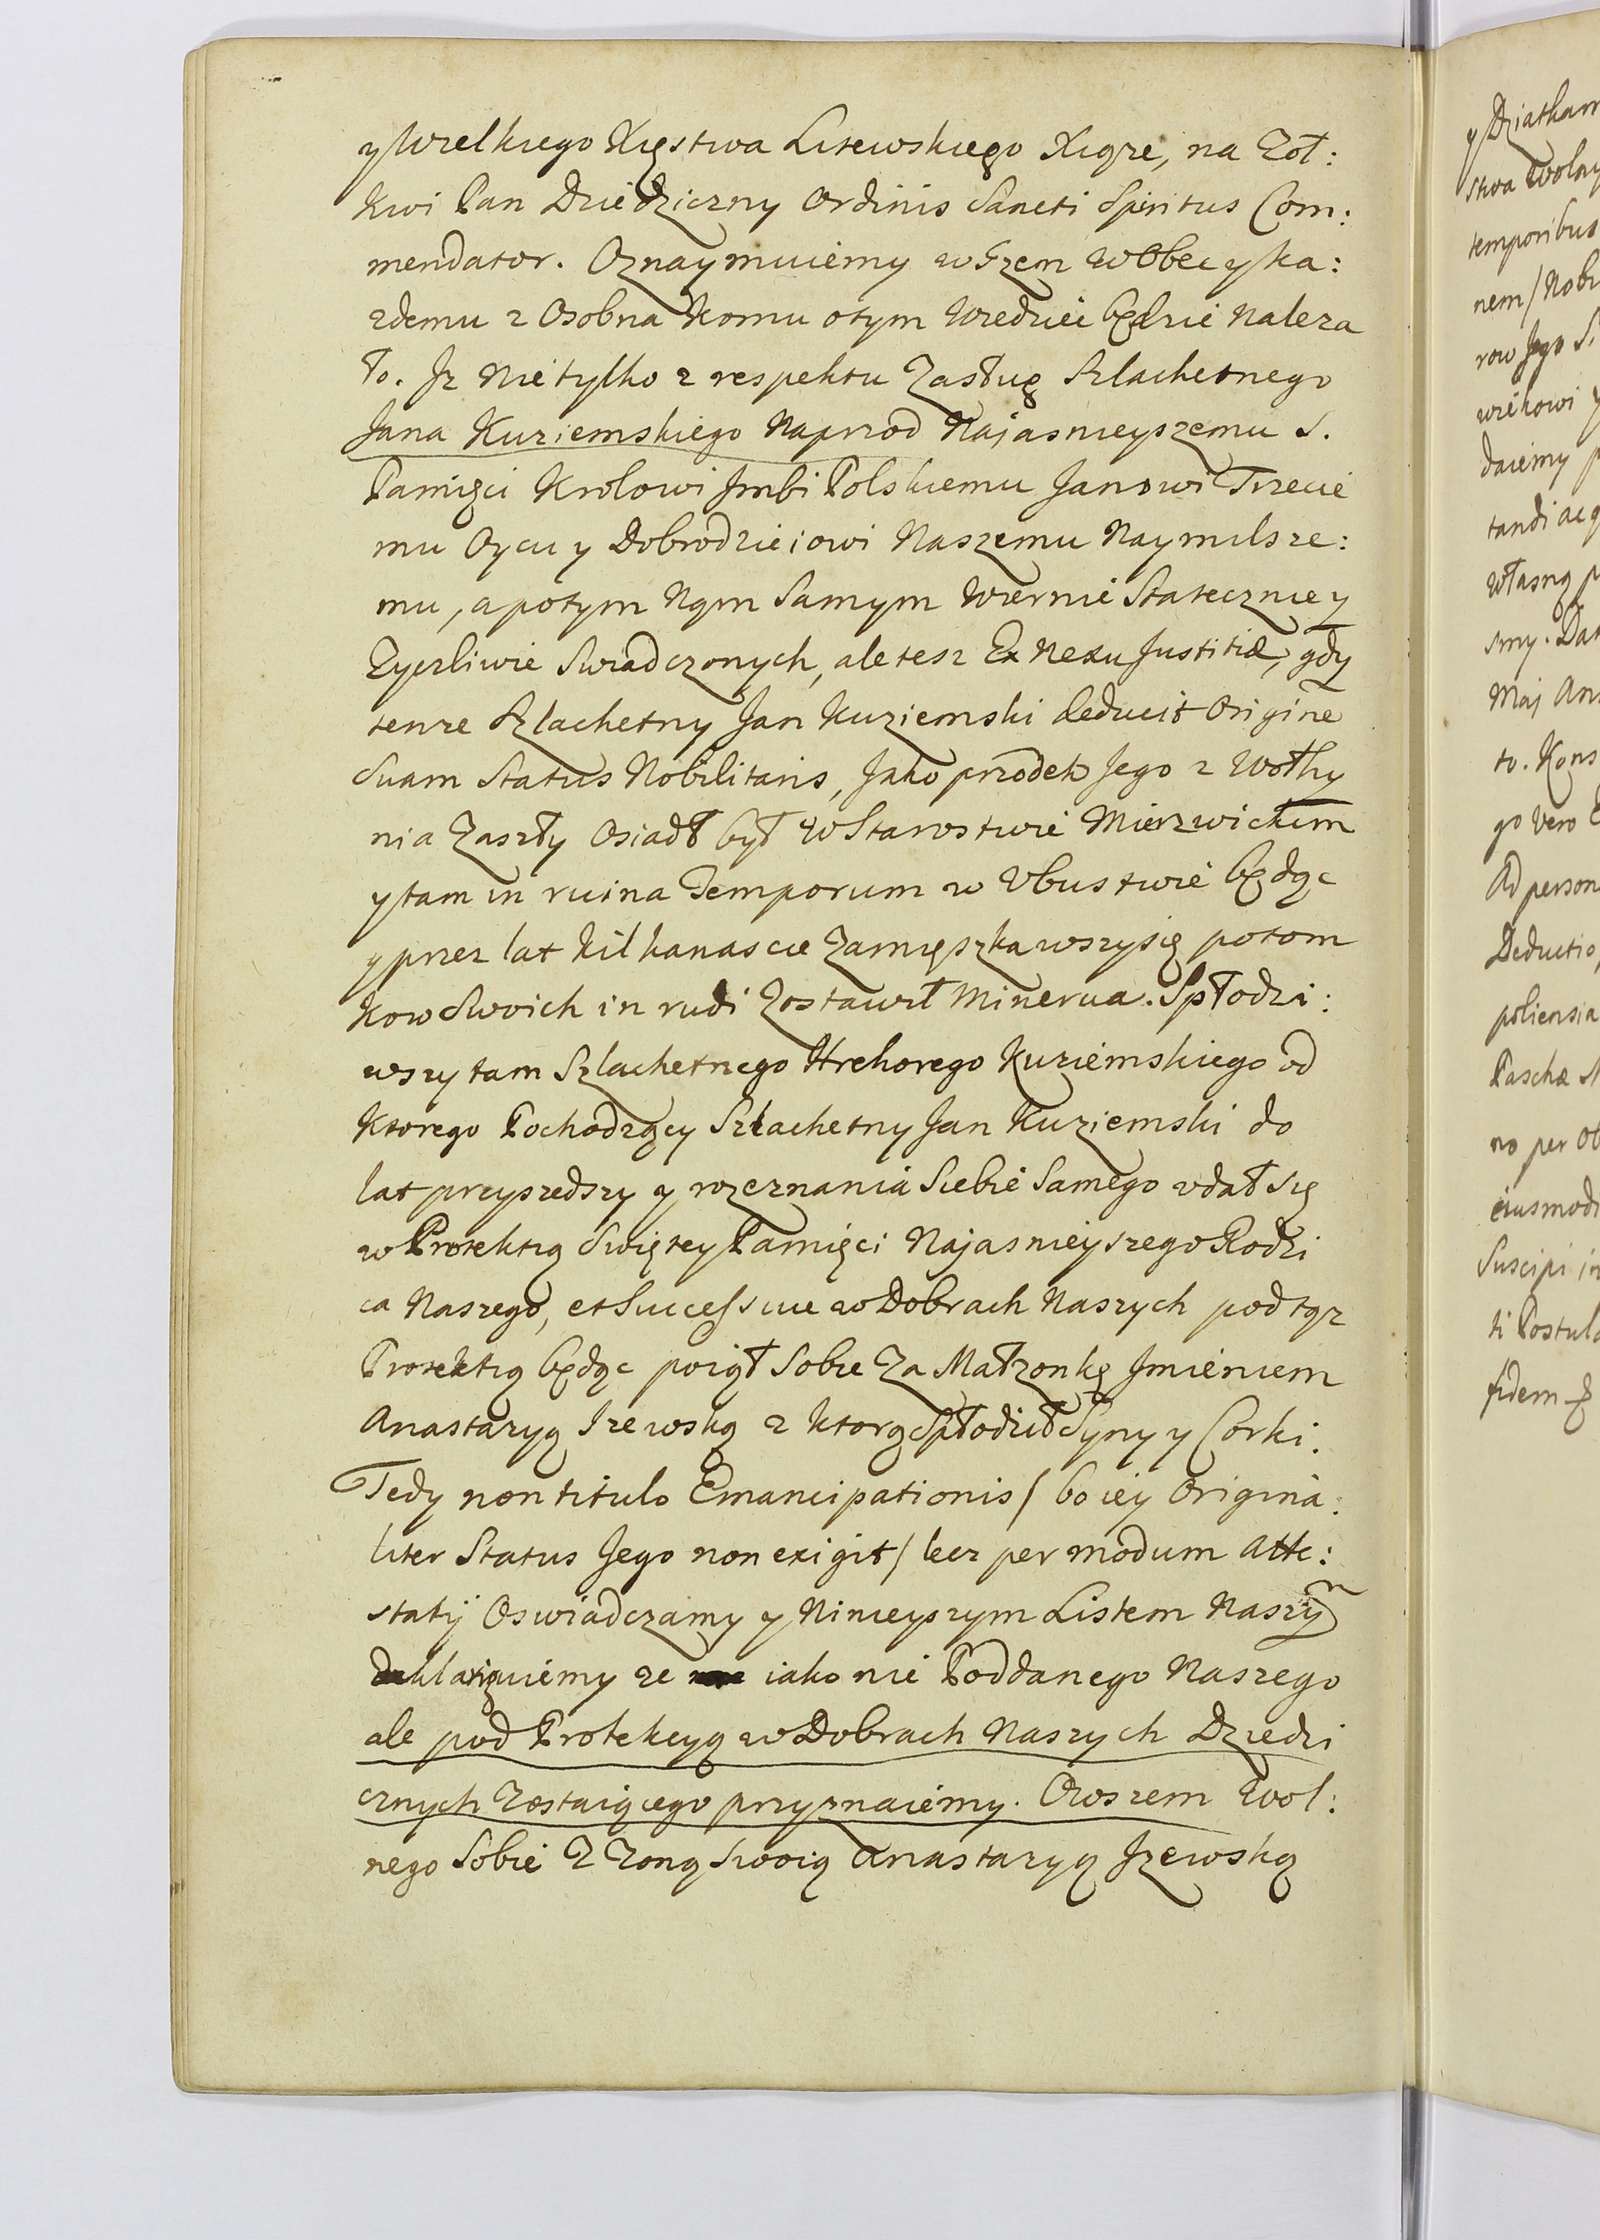 y Wielkiego Xięstwa Litewskiego Xiąze, na Zoł:
kwi Pan Dziedziczny Ordinis Sancti Spiritus Com:
mendator. Oznaymuiemy wszem wobbec y ka:
zdemu z Osobna komu otym Wiedzieć będzie Naleza
ło. Jz Nie tylko z respektu Zasług Szlachetnego
Jana Kuziemskiego Naprzod Najasnieyszemu S.
Pamięci Krolowi Jmći Polskiemu Janowi Trzecie
mu Oycu y Dobrodzieiowi Naszemu Naymilsze:
mu, apotym Nąm Samym Wiernie Statecznie y
Zyczliwie Swiadczonych, ale tesz Ex Nexu Justitiæ, gdy
tenze Szlachetny Jan Kuziemski deducit Originē
Suam Status Nobilitaris, Jako przodek Jego z Wołhy
nia Zaszły Osiadł był w Starostwie Mierzwickim
y tam in ruina Temporum w Ubustwie będąc
y przez lat kilkanascie Zamięszkawszysię potom
kow Swoich in rudi Zostawił Minerua. Spłodzi:
wszy tam Szlachetnego Hrehorego Kuziemskiego od
ktorego Pochodzący Szlachetny Jan Kuziemski do
lat przyszedszy y rozeznania Siebie Samego udał się
w Protektią Swiętey Pamięci Najasnieyszego Rodzi
ca Naszego, et Successiue w Dobrach Naszych pod tąz
Protektią będąc poiął Sobie Za Małzonkę Jmieniem
Anastazyą Jzewską z ktorą Spłodził Syny y Corki.
Tedy non titulo Emancipationis / bo iey Origina:
liter Status Jego non exigit / lecz per modum Atte:
statij Oswiadczamy y Ninieyszym Listem Naszym
deklaruiemy ze iako nie Poddanego Naszego
ale pod Protekcyą w Dobrach Naszych Dziedzi
cznych Zostaiącego przyznaiemy. Owszem Wol:
nego Sobie z Zoną Swoią Anastazyą Jzewską
y Dziatkam
stwa Wolny
temporibus
nem / Nobi
row Jego S.
wiekowi y
daiemy p
tandi ac q
własną p
smy. Dat
Maj An
to. Kons
go Vero
Ad person
Deductio,
poliensia
Paschæ
no per Ob
eiusmodi
Suscipi in
ti Postula
fidem